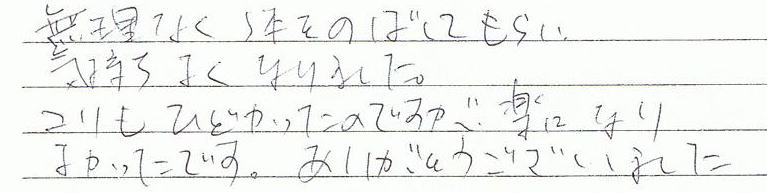 無理なく体をのばしてもらい
気持ちよくなりました。
コリもひどかったのですが、楽になり
よかったです。ありがとうございました